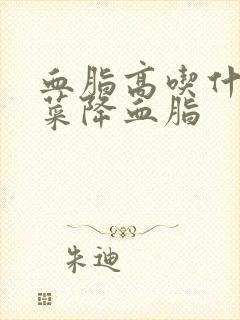 血脂高喫什
菜降血脂
朱迪